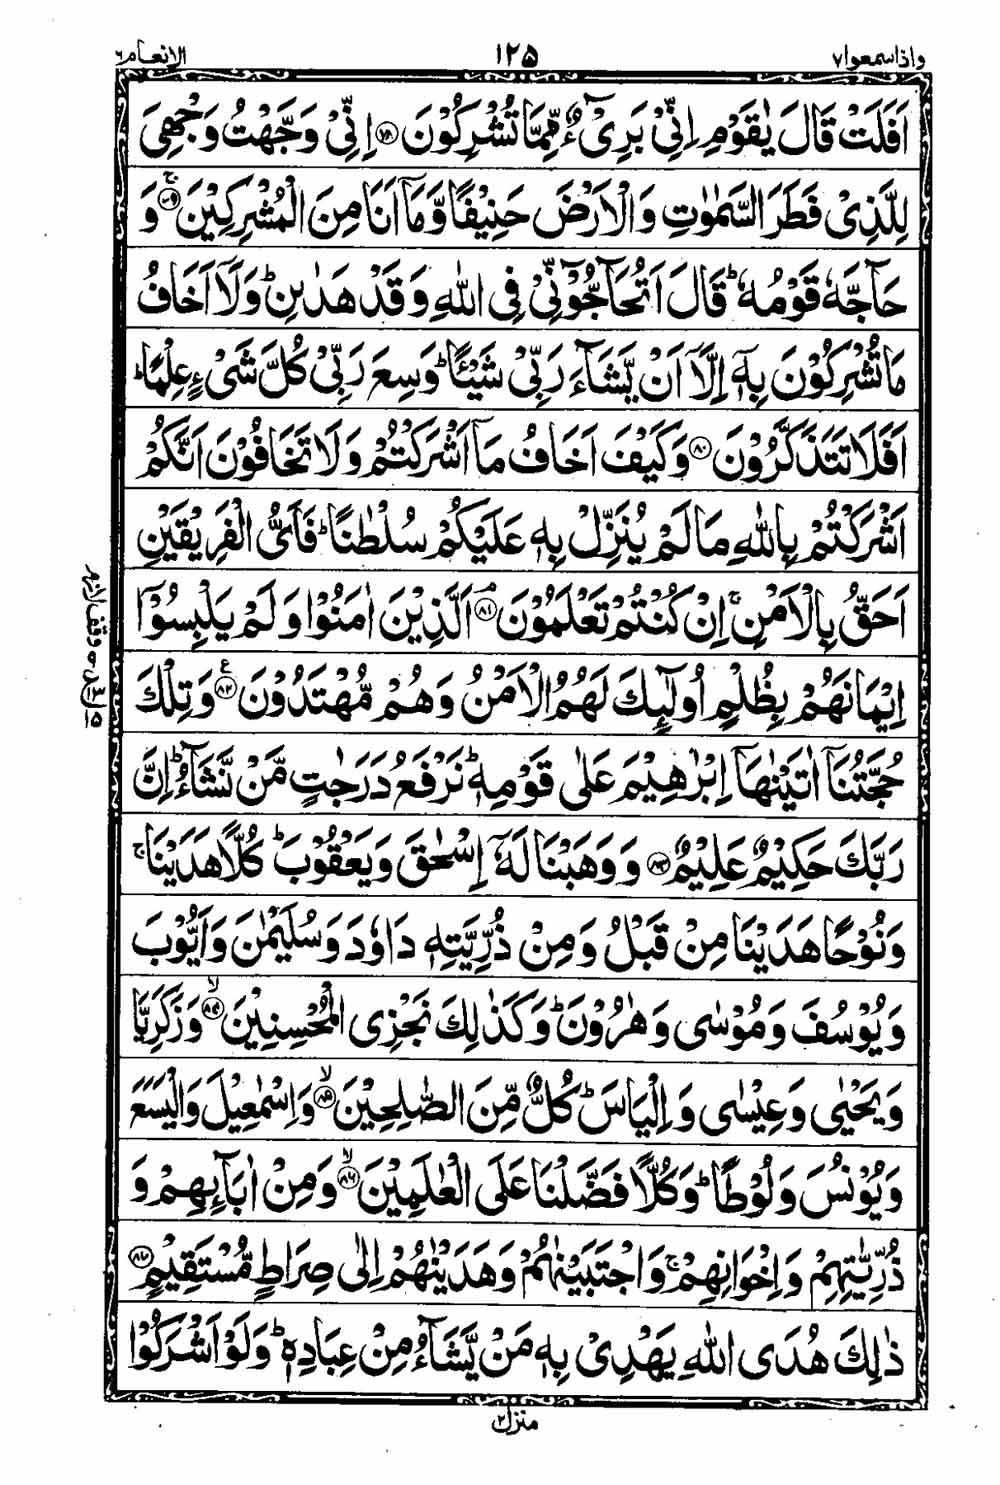 واذاسمعوا٧ ١٢٥ الانعام٦
اَفَلَتْ قَالَ يٰقَوْمِ اِنِّيْ بَرِيْٓءٌ مِّمَّا تُشْرِكُوْنَ ﴿۷۸﴾ اِنِّيْ وَجَّهْتُ وَجْهِيَ
لِلَّذِيْ فَطَرَ السَّمٰوٰتِ وَالْاَرْضَ حَنِيْفًا وَّمَاۤ اَنَا مِنَ الْمُشْرِكِيْنَ ﴿۷۹﴾ۚ وَ
حَآجَّهٗ قَوْمُهٗ ؕ قَالَ اَتُحَآجُّوْٓنِّيْ فِي اللّٰهِ وَقَدْ هَدٰىنِ ؕ وَلَاۤ اَخَافُ
مَا تُشْرِكُوْنَ بِهٖۤ اِلَّاۤ اَنْ يَّشَآءَ رَبِّيْ شَيْـًٔا ؕ وَسِعَ رَبِّيْ كُلَّ شَيْءٍ عِلْمًا ؕ
اَفَلَا تَتَذَكَّرُوْنَ ﴿۸۰﴾ وَكَيْفَ اَخَافُ مَاۤ اَشْرَكْتُمْ وَلَا تَخَافُوْنَ اَنَّكُمْ
اَشْرَكْتُمْ بِاللّٰهِ مَا لَمْ يُنَزِّلْ بِهٖ عَلَيْكُمْ سُلْطٰنًا ؕ فَاَيُّ الْفَرِيْقَيْنِ
اَحَقُّ بِالْاَمْنِ ۚ اِنْ كُنْتُمْ تَعْلَمُوْنَ ﴿۸۱﴾ۘ اَلَّذِيْنَ اٰمَنُوْا وَلَمْ يَلْبِسُوْۤا
اِيْمَانَهُمْ بِظُلْمٍ اُولٰٓئِكَ لَهُمُ الْاَمْنُ وَهُمْ مُّهْتَدُوْنَ ﴿۸۲﴾ع وَتِلْكَ
حُجَّتُنَاۤ اٰتَيْنٰهَاۤ اِبْرٰهِيْمَ عَلٰى قَوْمِهٖ ؕ نَرْفَعُ دَرَجٰتٍ مَّنْ نَّشَآءُ ؕ اِنَّ
رَبَّكَ حَكِيْمٌ عَلِيْمٌ ﴿۸۳﴾ وَوَهَبْنَا لَهٗۤ اِسْحٰقَ وَيَعْقُوْبَ ؕ كُلًّا هَدَيْنَا ۚ
وَنُوْحًا هَدَيْنَا مِنْ قَبْلُ وَمِنْ ذُرِّيَّتِهٖ دَاوٗدَ وَسُلَيْمٰنَ وَاَيُّوْبَ
وَيُوْسُفَ وَمُوْسٰى وَهٰرُوْنَ ؕ وَكَذٰلِكَ نَجْزِي الْمُحْسِنِيْنَ ﴿۸۴﴾ۙ وَزَكَرِيَّا
وَيَحْيٰى وَعِيْسٰى وَاِلْيَاسَ ؕ كُلٌّ مِّنَ الصّٰلِحِيْنَ ﴿۸۵﴾ۙ وَاِسْمٰعِيْلَ وَالْيَسَعَ
وَيُوْنُسَ وَلُوْطًا ؕ وَكُلًّا فَضَّلْنَا عَلَى الْعٰلَمِيْنَ ﴿۸۶﴾ۙ وَمِنْ اٰبَآئِهِمْ وَ
ذُرِّيّٰتِهِمْ وَاِخْوَانِهِمْ ۚ وَاجْتَبَيْنٰهُمْ وَهَدَيْنٰهُمْ اِلٰى صِرَاطٍ مُّسْتَقِيْمٍ ﴿۸۷﴾
ذٰلِكَ هُدَى اللّٰهِ يَهْدِيْ بِهٖ مَنْ يَّشَآءُ مِنْ عِبَادِهٖ ؕ وَلَوْ اَشْرَكُوْا
منزل٢